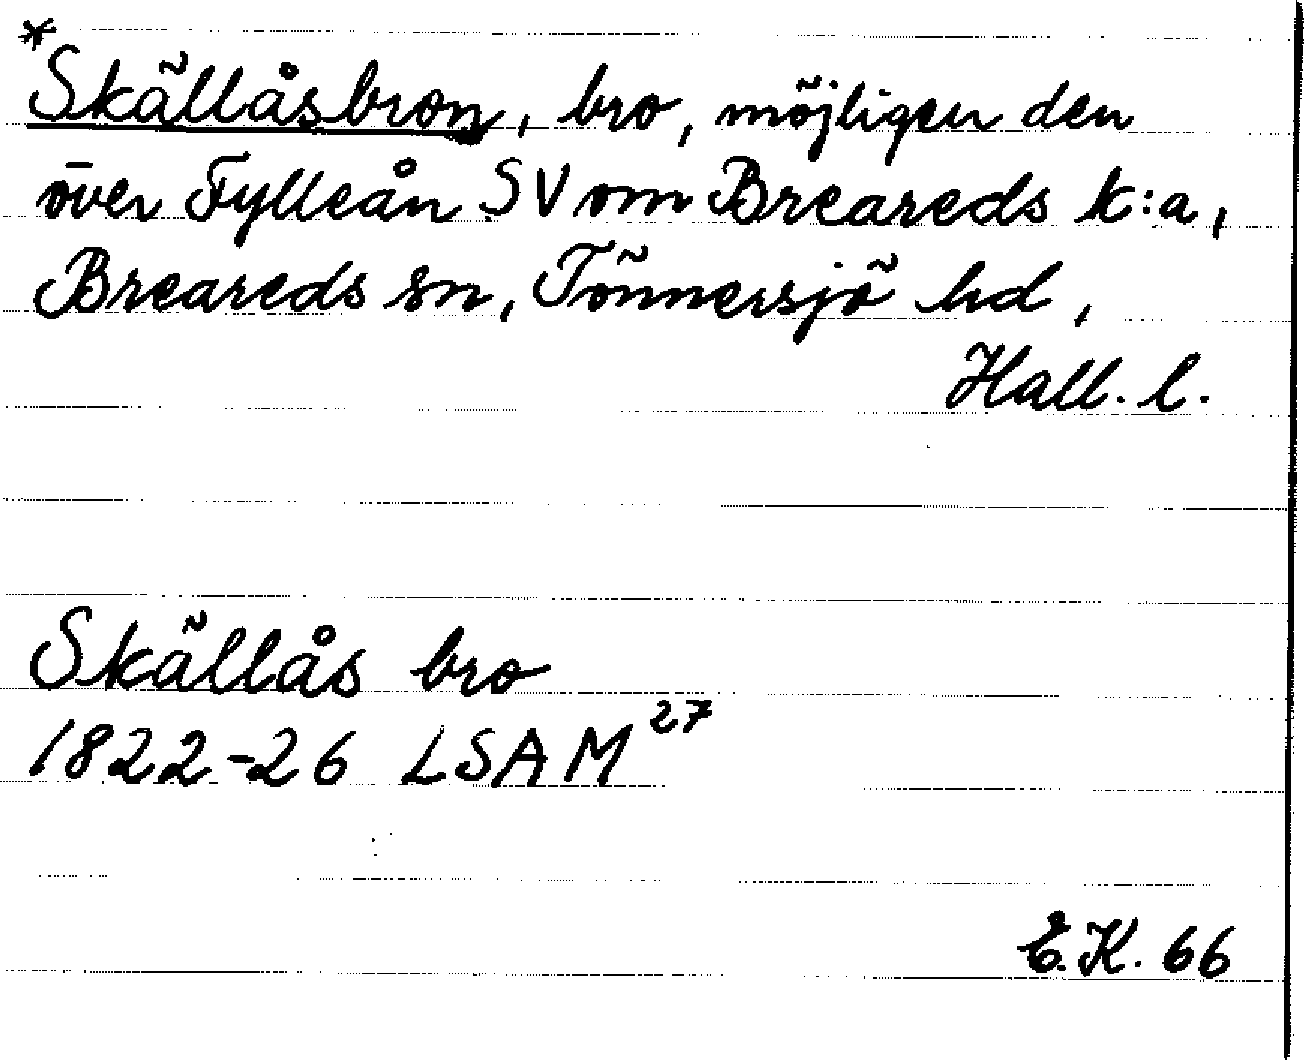 *Skällåsbron, bro, möjligen den
över Fylleån SV om Breareds k:a,
Breareds sn, Tönnersjö hd,
Hall. l.
Skällås bro
1822-26 LSA M 27
E.K. 66